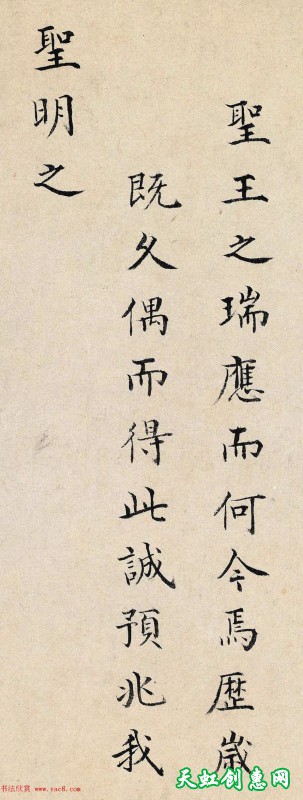 聖王之瑞應而何今焉歷歲
既久偶而得此誠預兆我
聖明之
书法欣赏 www.yac8.com
天虹创惠网